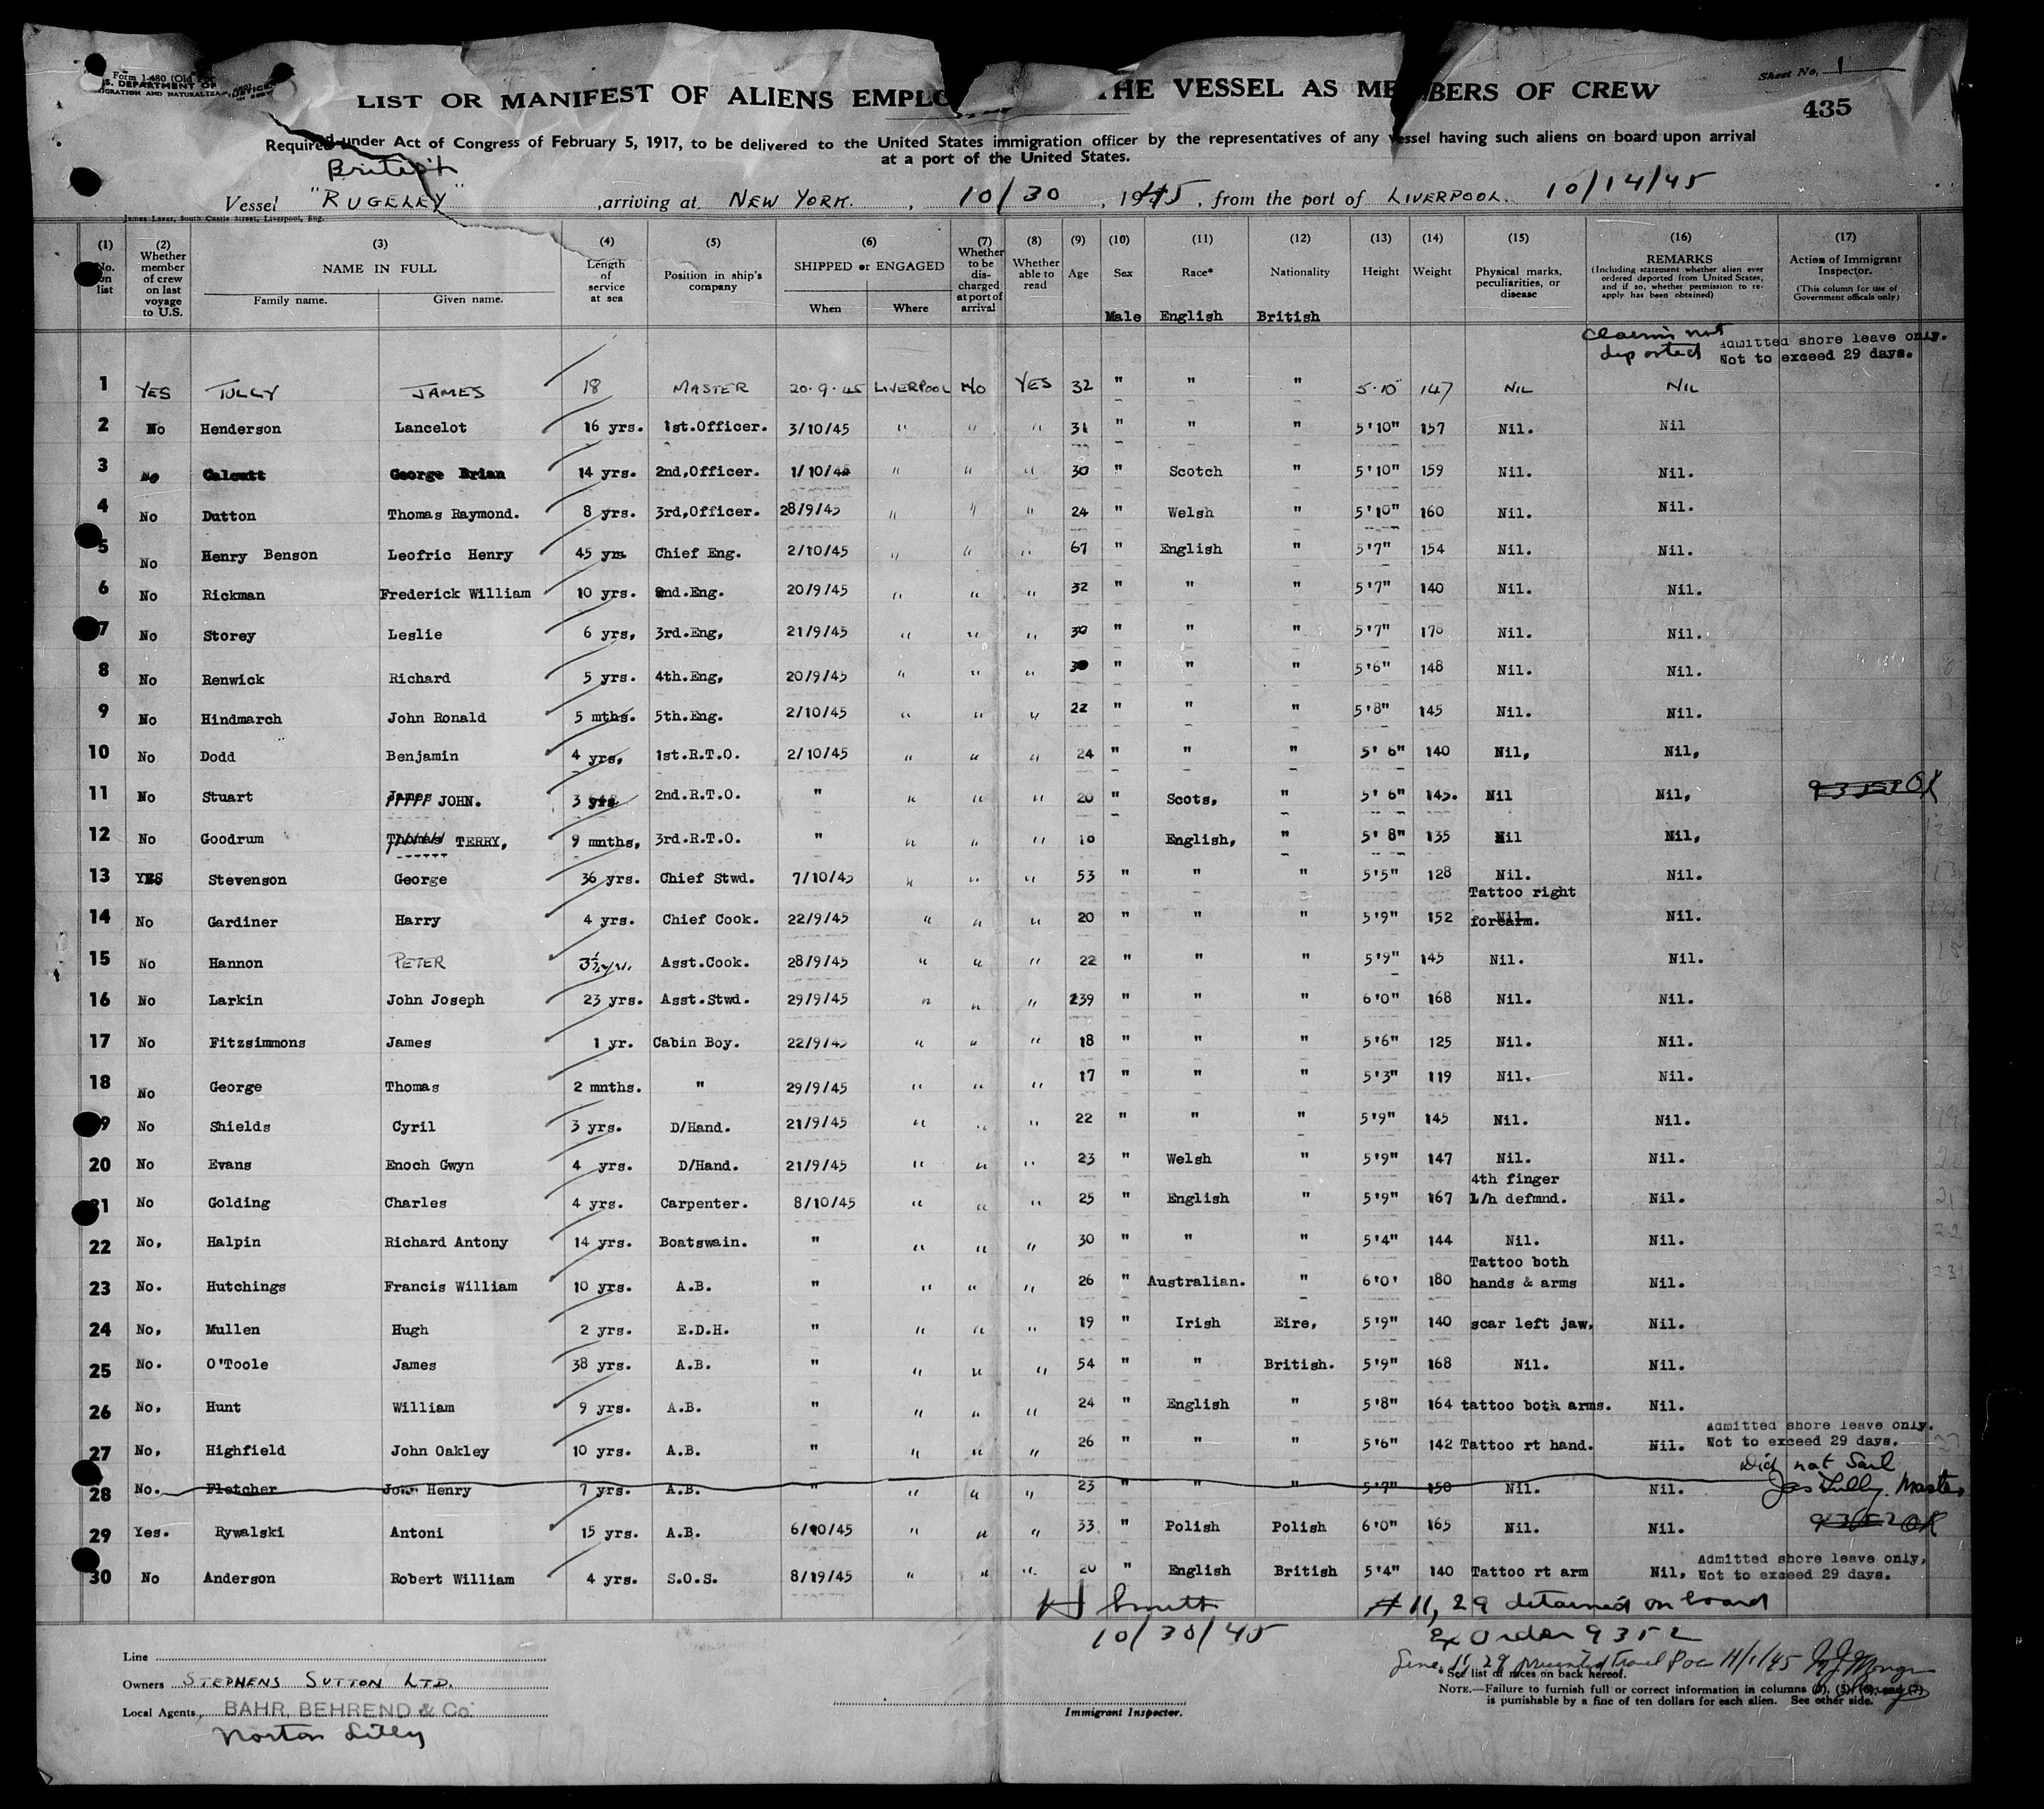 Form 1-480 (Old
S. DEPARTMENT OF JUSTICE
Sheet No. 1
LIST OR MANIFEST OF ALIENS EMPLO THE VESSEL AS MEMBERS OF CREW
435
Required under Act of Congress of February 5, 1917, to be delivered to the United States immigration officer by the representatives of any vessel having such aliens on board upon arrival
at a port of the United States.
British
Vessel "RUGELEY" , arriving at NEW YORK. , 10/30 , 1945, from the port of LIVERPOOL. 10/14/45
James Laver, South Castle Street, Liverpool, Eng.
(1) No. on list (2) Whether member of crew on last voyage to U.S. (3) NAME IN FULL Family name. Given name. (4) Length of service at sea (5) Position in ship's company (6) SHIPPED or ENGAGED When Where (7) Whether to be discharged at port of arrival (8) Whether able to read (9) Age (10) Sex (11) Race* (12) Nationality (13) Height (14) Weight (15) Physical marks, peculiarities, or disease (16) REMARKS (Including statement whether alien ever ordered deported from United States, and if so, whether permission to re-apply has been obtained) (17) Action of Immigrant Inspector. (This column for use of Government officals only)
Male English British
Claims not deported Admitted shore leave only. Not to exceed 29 days.
1 YES TULLY JAMES 18 MASTER 20·9·45 LIVERPOOL NO YES 32 " " " 5·10" 147 NIL NIL
2 No Henderson Lancelot 16 yrs. 1st.Officer. 3/10/45 " " " 31 " " " 5'10" 157 Nil. Nil
3 No Calcutt George Brian 14 yrs. 2nd,Officer. 1/10/45 " " " 30 " Scotch " 5'10" 159 Nil. Nil.
4 No Dutton Thomas Raymond. 8 yrs. 3rd,Officer. 28/9/45 " " " 24 " Welsh " 5'10" 160 Nil. Nil.
5 No Henry Benson Leofric Henry 45 yrs Chief Eng. 2/10/45 " " " 67 " English " 5'7" 154 Nil. Nil.
6 No Rickman Frederick William 10 yrs. 2nd.Eng. 20/9/45 " " " 32 " " " 5'7" 140 Nil. Nil.
7 No Storey Leslie 6 yrs, 3rd.Eng, 21/9/45 " " " 30 " " " 5'7" 178 Nil. Nil.
8 No Renwick Richard 5 yrs. 4th.Eng, 20/9/45 " " " 30 " " " 5'6" 148 Nil. Nil.
9 No Hindmarch John Ronald 5 mths. 5th.Eng. 2/10/45 " " " 22 " " " 5'8" 145 Nil. Nil.
10 No Dodd Benjamin 4 yrs, 1st.R.T.O. 2/10/45 " " " 24 " " " 5' 6" 140 Nil, Nil,
11 No Stuart James JOHN. 3 yrs 2nd.R.T.O. " " " " 20 " Scots, " 5' 6" 145. Nil Nil, 9352 OK
12 No Goodrum Thomas TERRY, 9 mnths, 3rd.R.T.O. " " " " 10 " English, " 5' 8" 135 Nil Nil,
13 YES Stevenson George 36 yrs. Chief Stwd. 7/10/45 " " " 53 " " " 5'5" 128 Nil. Nil.
14 No Gardiner Harry 4 yrs. Chief Cook. 22/9/45 " " " 20 " " " 5'9" 152 Tattoo right Nil forearm. Nil.
15 No Hannon PETER 3½ yrs. Asst.Cook. 28/9/45 " " " 22 " " " 5'9" 145 Nil. Nil.
16 No Larkin John Joseph 23 yrs. Asst.Stwd. 29/9/45 " " " 239 " " " 6'0" 168 Nil. Nil.
17 No Fitzsimmons James 1 yr. Cabin Boy. 22/9/45 " " " 18 " " " 5'6" 125 Nil. Nil.
18 No George Thomas 2 mnths. " 29/9/45 " " " 17 " " " 5'3" 119 Nil. Nil.
9 No Shields Cyril 3 yrs. D/Hand. 21/9/45 " " " 22 " " " 5'9" 145 Nil. Nil.
20 No Evans Enoch Gwyn 4 yrs. D/Hand. 21/9/45 " " " 23 " Welsh " 5'9" 147 Nil. Nil.
21 No Golding Charles 4 yrs. Carpenter. 8/10/45 " " " 25 " English " 5'9" 167 4th finger L/h defmnd. Nil.
22 No, Halpin Richard Antony 14 yrs. Boatswain. " " " " 30 " " " 5'4" 144 Nil. Nil.
23 No. Hutchings Francis William 10 yrs. A.B. " " " " 26 " Australian. " 6'0' 180 Tattoo both hands & arms Nil.
24 No, Mullen Hugh 2 yrs. E.D.H. " " " " 19 " Irish Eire, 5'9" 140 scar left jaw, Nil.
25 No. O'Toole James 38 yrs. A.B. " " " " 54 " " British. 5'9" 168 Nil. Nil.
26 No, Hunt William 9 yrs. A.B. " " " " 24 " English " 5'8" 164 tattoo both arms. Nil.
27 No, Highfield John Oakley 10 yrs. A.B. " " " " 26 " " " 5'6" 142 Tattoo rt hand. Nil. Admitted shore leave only. Not to exceed 29 days.
28 No. Fletcher John Henry 7 yrs. A.B. " " " " 23 " " " 5'7" 150 Nil. Nil. Did not Sail Jas Tully. Master
29 Yes. Rywalski Antoni 15 yrs. A.B. 6/10/45 " " " 33 " Polish Polish 6'0" 165 Nil. Nil. 9352 OK
30 No Anderson Robert William 4 yrs. S.O.S. 8/19/45 " " " 20 " English British 5'4" 140 Tattoo rt arm Nil, Admitted shore leave only, Not to exceed 29 days.
H Smith # 11, 29 detained on board
10/30/45 Ex Order 9352
Line 11, 29 presented Travel Doc 11/1/45
Line
* See list of races on back hereof.
Owners STEPHENS SUTTON LTD.
NOTE.—Failure to furnish full or correct information in columns (3), (5), (6), and (7)
is punishable by a fine of ten dollars for each alien. See other side.
Local Agents, BAHR, BEHREND & Co.
Immigrant Inspector.
Norton Lilly